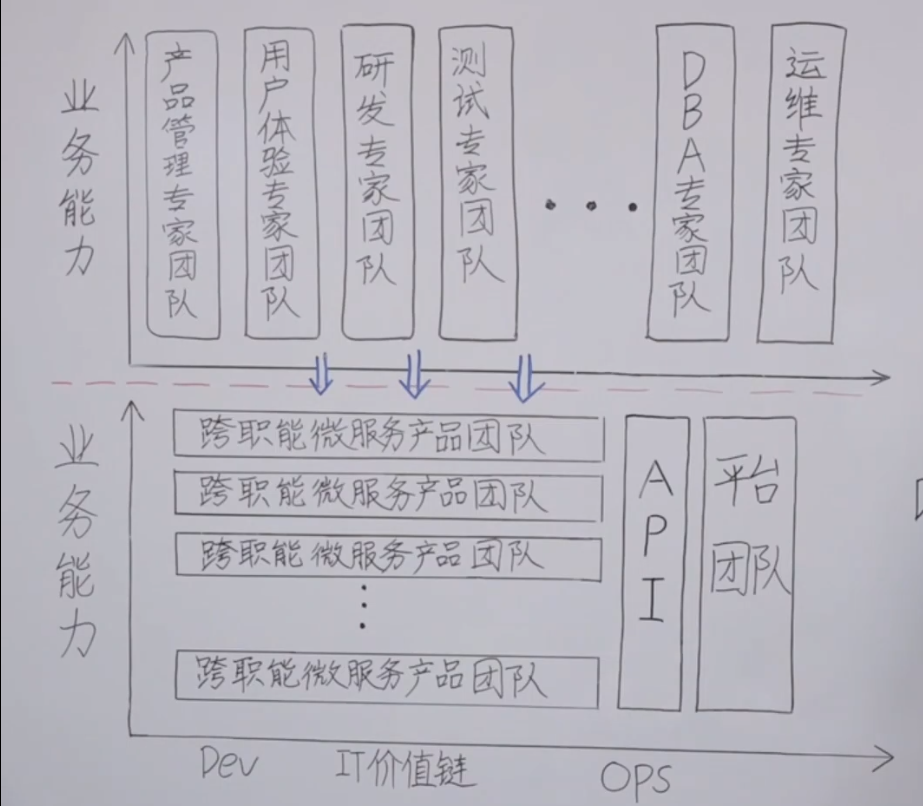 业务能力
产品管理专家团队
用户体验专家团队
研发专家团队
测试专家团队
...
DBA专家团队
运维专家团队
业务能力
跨职能微服务产品团队
跨职能微服务产品团队
跨职能微服务产品团队
...
跨职能微服务产品团队
API
平台
团队
Dev
IT价值链
OPS